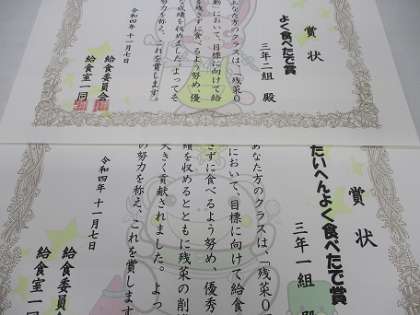 賞状
よく食べたで賞
三年二組 殿
あなた方のクラスは、残菜0
動において、目標に向けて給
残さずに食べるよう努め、優
成績を収めました。よってそ
力を称え、これを賞します。
令和四年十一月七日
給食委員会
給食室一同
賞状
たいへんよく食べたで賞
三年一組 殿
あなた方のクラスは、「残菜0
において、目標に向けて給食
さずに食べるよう努め、優秀
績を収めるとともに残菜の削
大きく貢献されました。よっ
の努力を称え、これを賞します
令和四年十一月七日
給食委員
給食室一